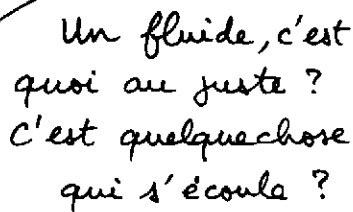 Un fluide, c'est
quoi au juste ?
C'est quelquechose
qui s'écoule ?